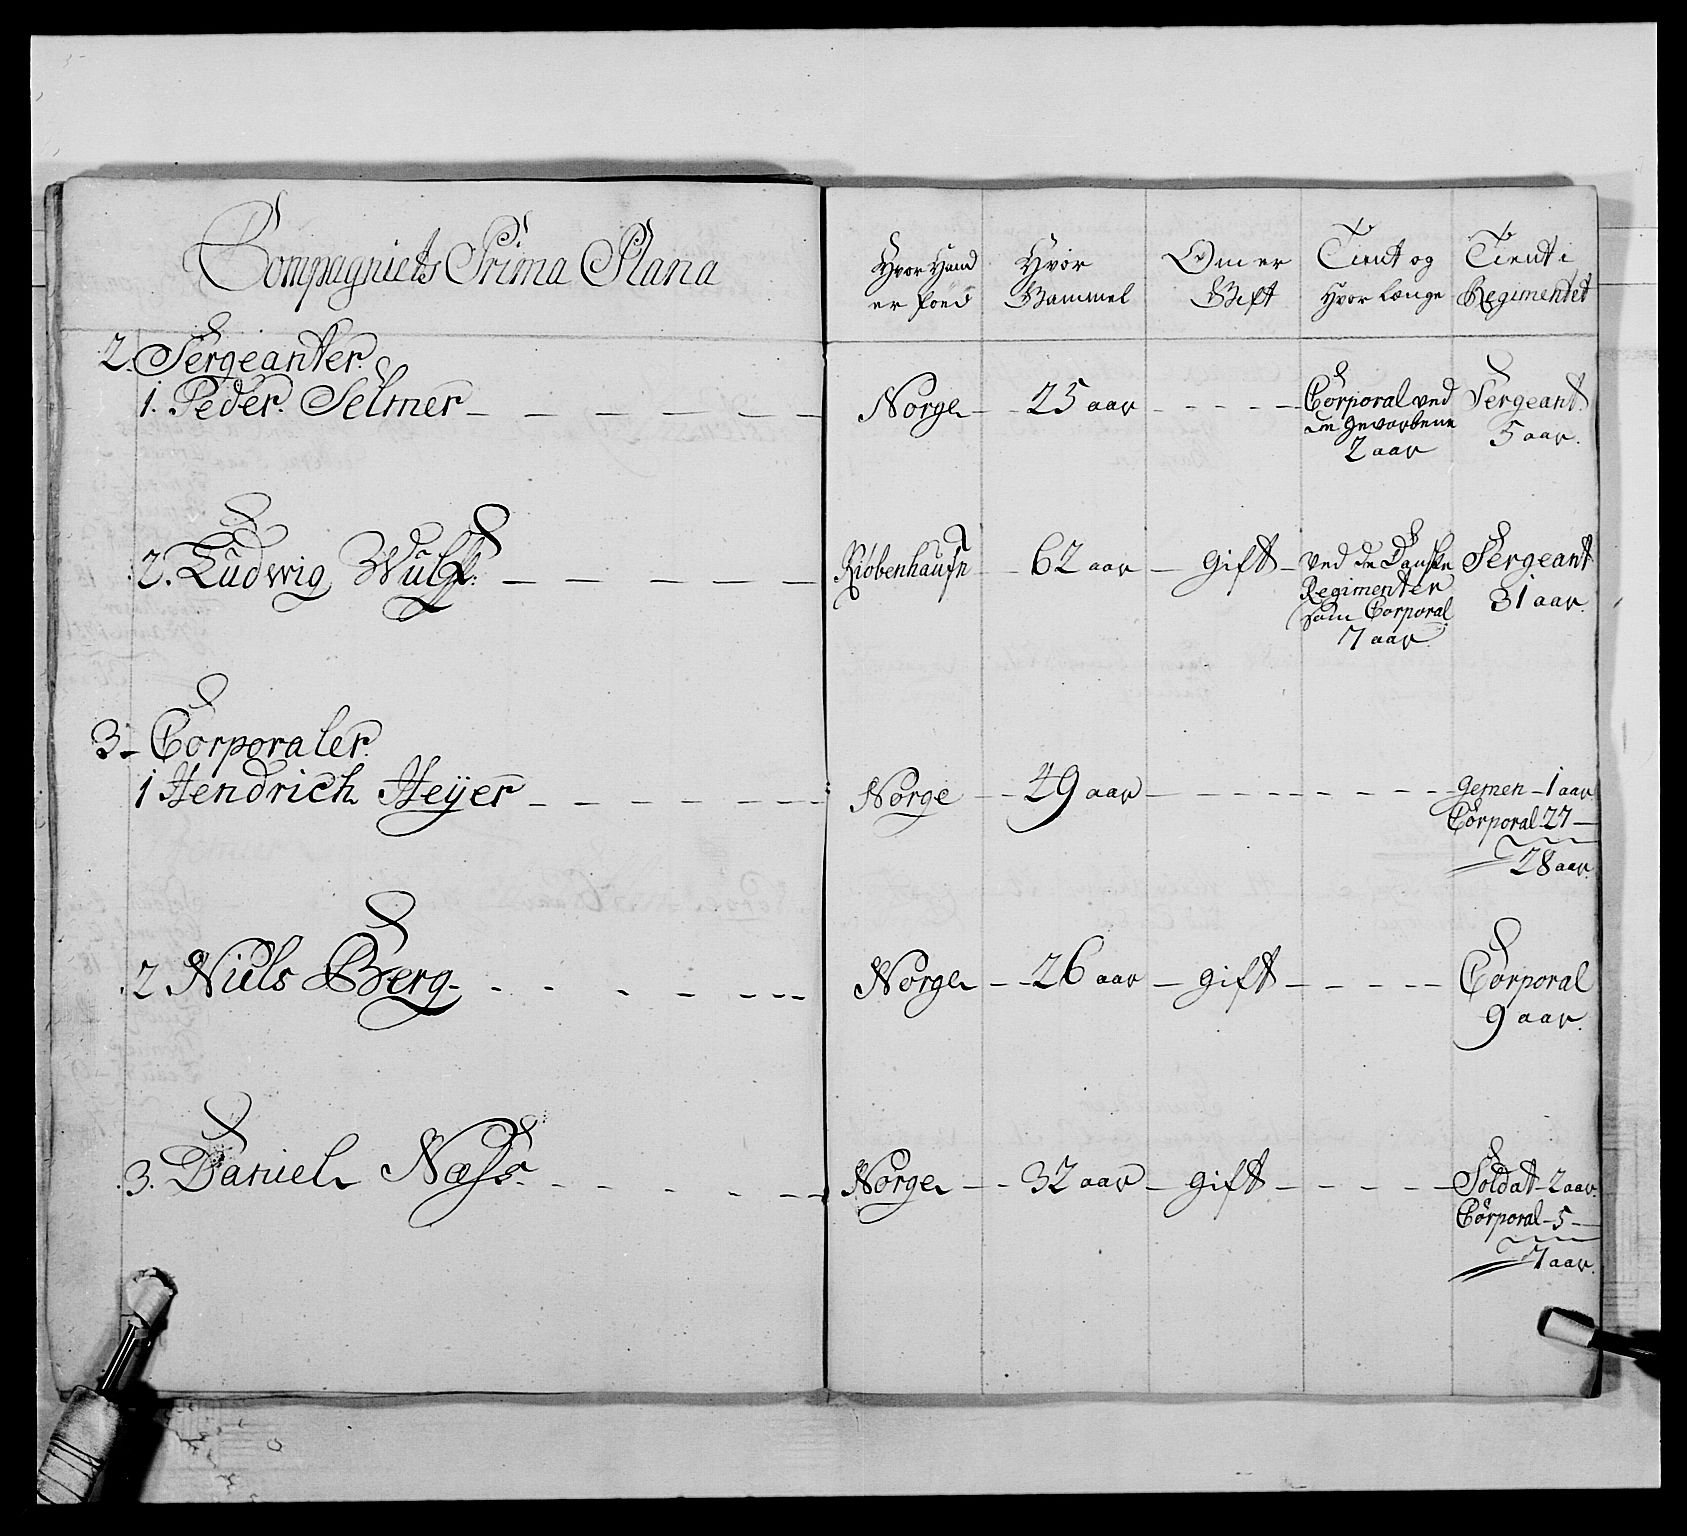 Compagniets Prima Plana
Hvor Hand er föed
Hvor Gammel
Om er Gift
Tient og Hvor længe
Tient i Regimentet
2. Sergeanter.
1. Peder Selmer
Norge
25 aar
Corporal ved
de gevorbene
2 aar
Sergeant
5 aar.
2. Ludwig Wulff.
Kiöbenhaufn
62 aar
gift
ved de Danske
Regimenter
som Corporal
7 aar
Sergeant
31 aar.
3 Corporaler.
1 Hendrich Heÿer
Norge
49 aar
gemen 1 aar
Corporal 27
28 aar.
2 Niels Berg
Norge
26 aar
gift
Corporal
9 aar.
3. Daniel Næss
Norge
32 aar
gift
Soldat 2 aar
Corporal 5
7 aar.